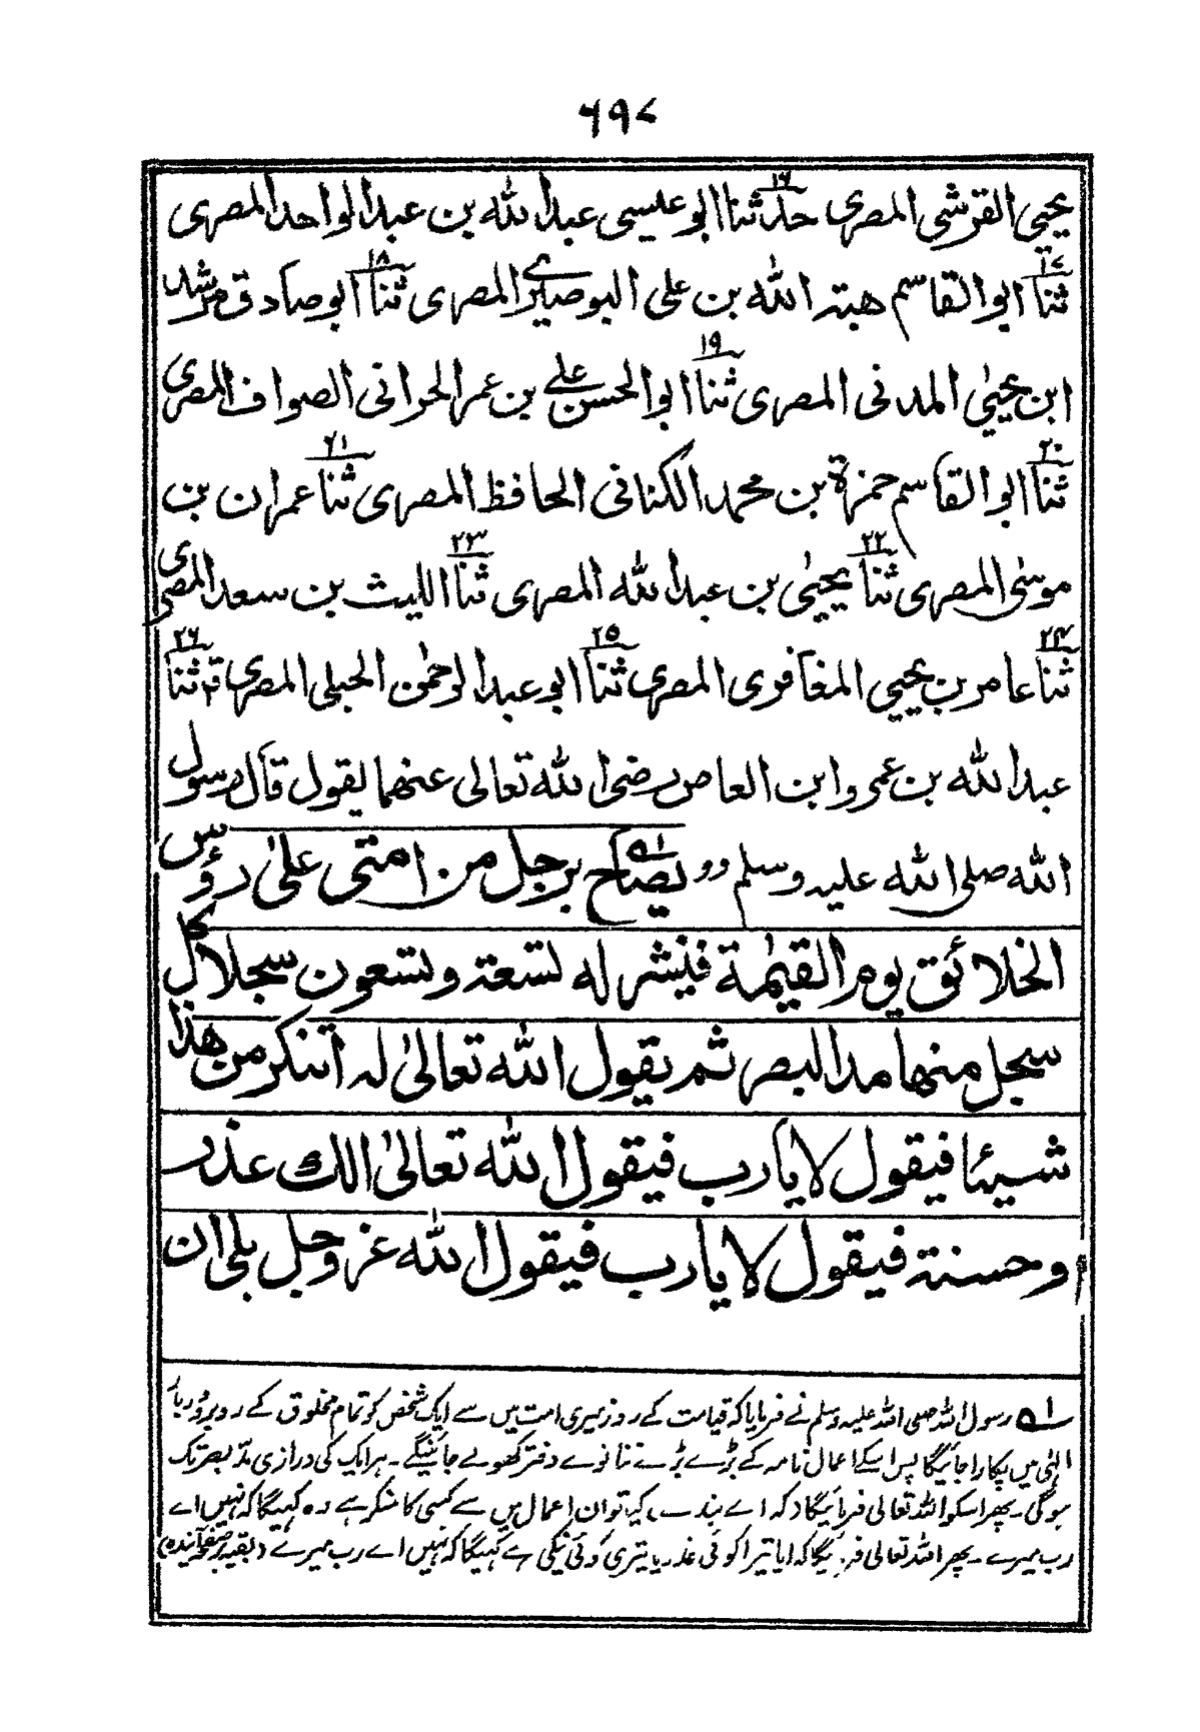 ۶۹۷
يحيي القرشي المصري حدثنا ۱۶ ابو عيسى عبد الله بن عبد الواحد المصري
ثنا ۱۷ ابو القاسم هبته الله بن على البوصيري المصرى ثنا ۱۸ ابو صادق مرشد
ابن يحيىٰ المدنى المصرى ثنا ۱۹ ابوالحسن علي بن عمر الحرانى الصواف المصرى
ثنا ۲۰ ابو القاسم حمزة بن محمد الكنانى الحافظ المصرى ثنا ۲۱ عمران بن
موسٰى المصرى ثنا ۲۲ يحيىٰ بن عبد الله المصرى ثنا ۲۳ الليث بن سعد المصرى
ثنا ۲۴ عامر بن يحيي المغافرى المصرى ثنا ۲۵ ابو عبد الرحمٰن الحبلى المصرى ثنا ۲۶
عبد الله بن عمرو ابن العاص رضى الله تعالى عنهما يقول قال رسول
الله صلى الله عليه وسلم رو يصاح ۱ه برجل من امتى علىٰ رؤس
الخلائق يوم القيٰمة فينشر له تسعة وتسعون سجلا كل
سجل منها مد البصر ثم يقول الله تعالىٰ له أتنكر من هذا
شيئا فيقول لا يا رب فيقول الله تعالىٰ الك عذر
وحسنة فيقول لا يا رب فيقول الله عز وجل بلى ان
۱ه رسول اللہ صلی اللہ علیہ وسلم نے فرمایا کہ قیامت کے روز میری امت میں سے ایک شخص کو تمام مخلوق کے روبرو دربار
الہٰی میں پکارا جائیگا پس اسکے اعمال نامہ کے بڑے بڑے ننانوے دفتر کھولے جائینگے۔ ہر ایک کی درازی مدّ بصر تک
ہوگی۔ پھر اسکو اللہ تعالی فرمائیگا کہ اے بندے کیا تو ان اعمال میں سے کسی کا منکر ہے وہ کہیگا کہ نہیں اے
رب میرے۔ پھر اللہ تعالی فرمائیگا کہ آیا تیرا کوئی عذر یا تیری کوئی نیکی ہے کہیگا کہ نہیں اے رب میرے (بقیہ برصفحہ آیندہ)